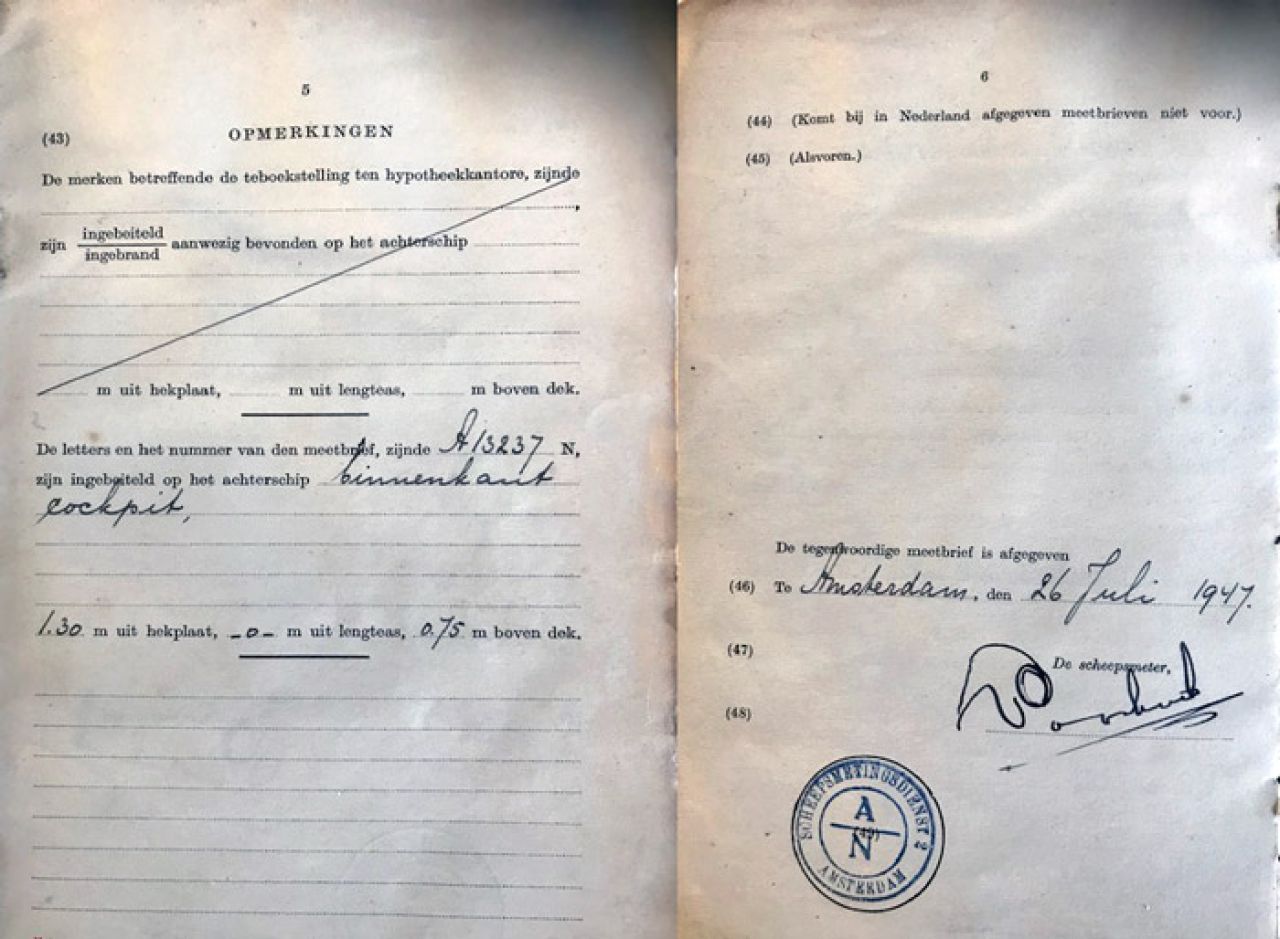 5
(43) OPMERKINGEN
De merken betreffende de teboekstelling ten hypotheekkantore, zijnde
,
zijn ingebeiteld
ingebrand aanwezig bevonden op het achterschip
m uit hekplaat, m uit lengteas, m boven dek.
De letters en het nummer van den meetbrief, zijnde A 13237 N,
zijn ingebeiteld op het achterschip binnenkant
cockpit,
1.30 m uit hekplaat, -0- m uit lengteas, 0.75 m boven dek.
6
(44) (Komt bij in Nederland afgegeven meetbrieven niet voor.)
(45) (Alsvoren.)
De tegenwoordige meetbrief is afgegeven
(46) Te Amsterdam, den 26 Juli 1947.
(47) De scheepsmeter,
(48)
SCHEEPSMETINGSDIENST 2
A
(49)
N
AMSTERDAM